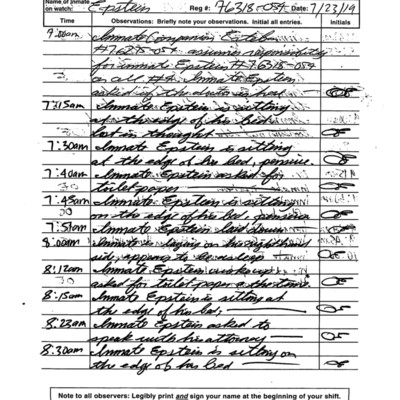 Name of inmate
on watch: Epstein Reg #: 76318-054 Date: 7/23/19
Time Observations: Briefly note your observations. Initial all entries. Initials
Inmate Companion
#76318-054 assumes responsibility
for inmate Epstein #76318-054
Inmate Epstein
asked if the
7:15am Inmate Epstein is sitting
at the edge of his bed
lost in thought
7:30am Inmate Epstein is sitting
at the edge of his bed, pensive.
7:40am Inmate Epstein asked for
toilet paper
7:45am Inmate Epstein is sitting
on the edge of his bed, pensive
7:51am Inmate Epstein laid down
8:00am Inmate is laying on his right hand
side, appears to be asleep
8:12am Inmate Epstein woke up
asked for toilet paper
8:15am Inmate Epstein is sitting at
the edge of his bed,
8:23am Inmate Epstein asked to
speak with his attorney
8:30am Inmate Epstein is sitting on
the edge of his bed
Note to all observers: Legibly print and sign your name at the beginning of your shift.